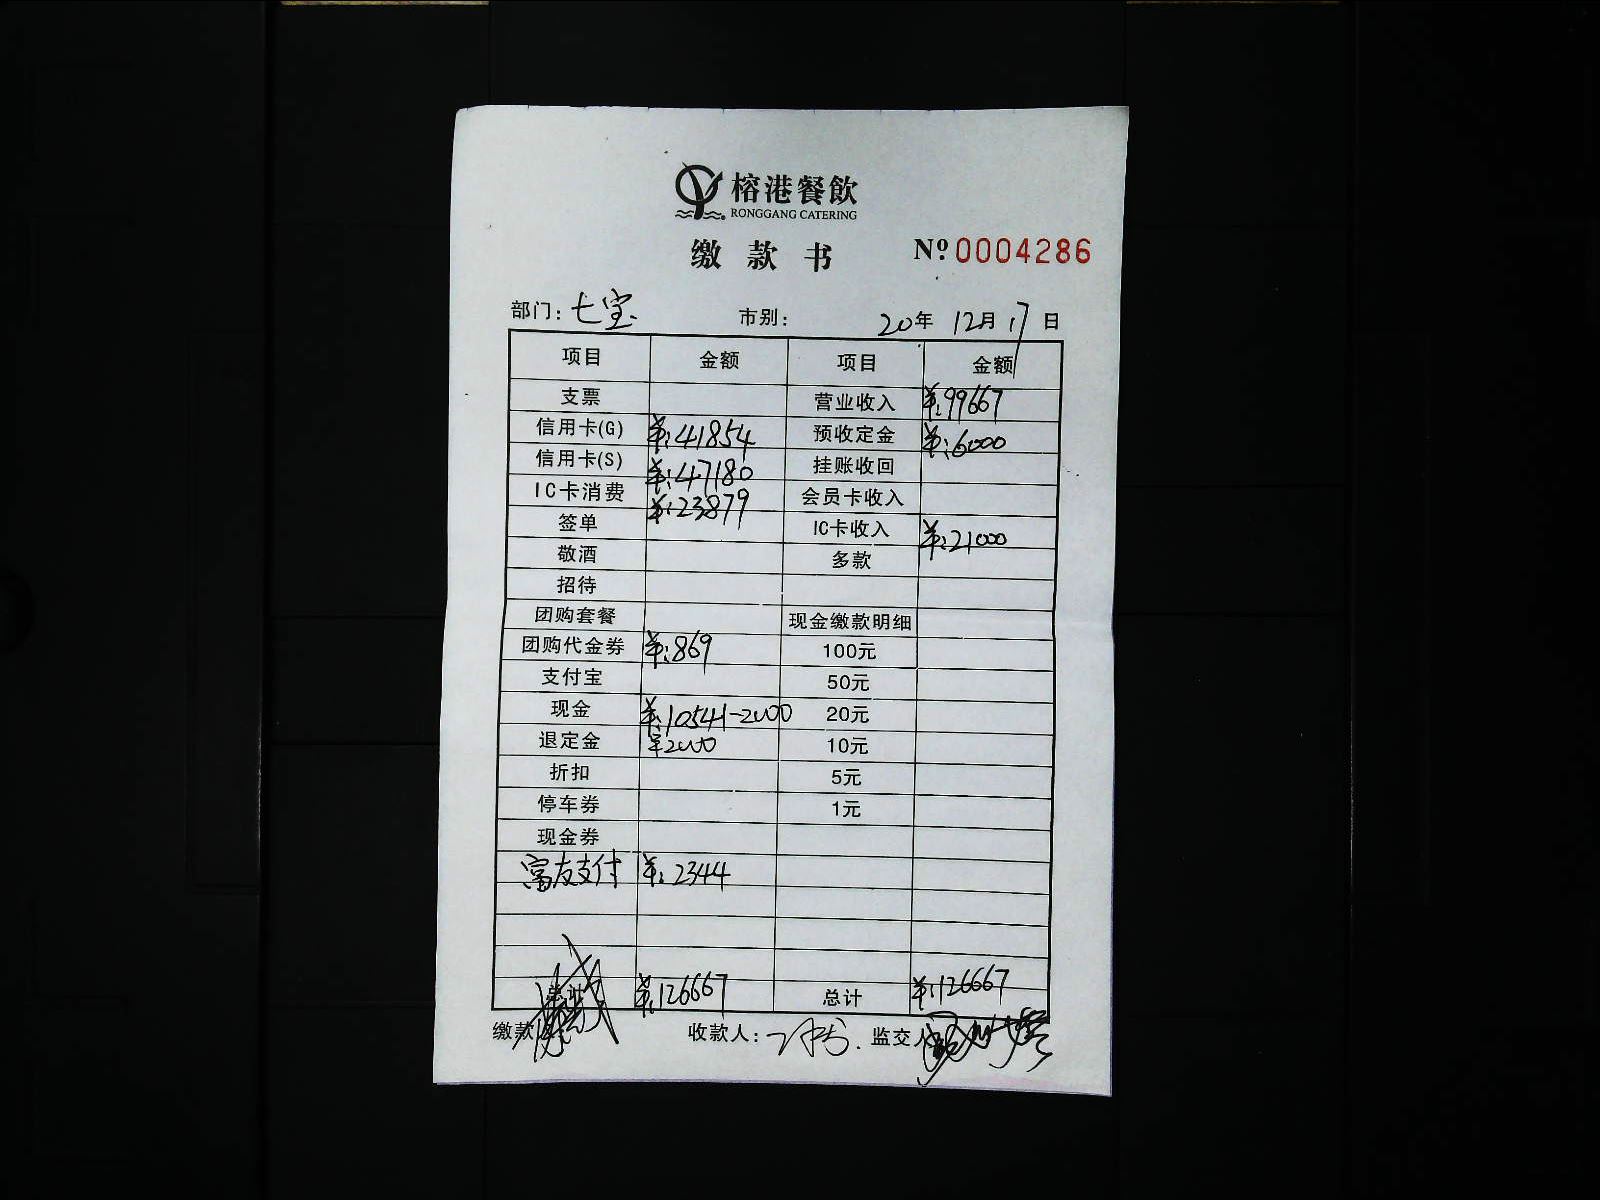 榕港餐飲
RONGGANG CATERING
缴款书 Nº:0004286
部门:七宝 市别: 20年 12月17日
项目 金额 项目 金额
支票 营业收入 ¥:99667
信用卡(G) ¥:41854 预收定金 ¥:6000
信用卡(S) ¥:47180 挂账收回
IC卡消费 ¥:23879 会员卡收入
签单 IC卡收入 ¥:21000
敬酒 多款
招待
团购套餐 现金缴款明细
团购代金券 ¥:869 100元
支付宝 50元
现金 ¥:10541-2000 20元
退定金 ¥2000 10元
折扣 5元
停车券 1元
现金券
富友支付 ¥:2344
总计 ¥:126667 总计 ¥:126667
缴款 收款人: 监交人